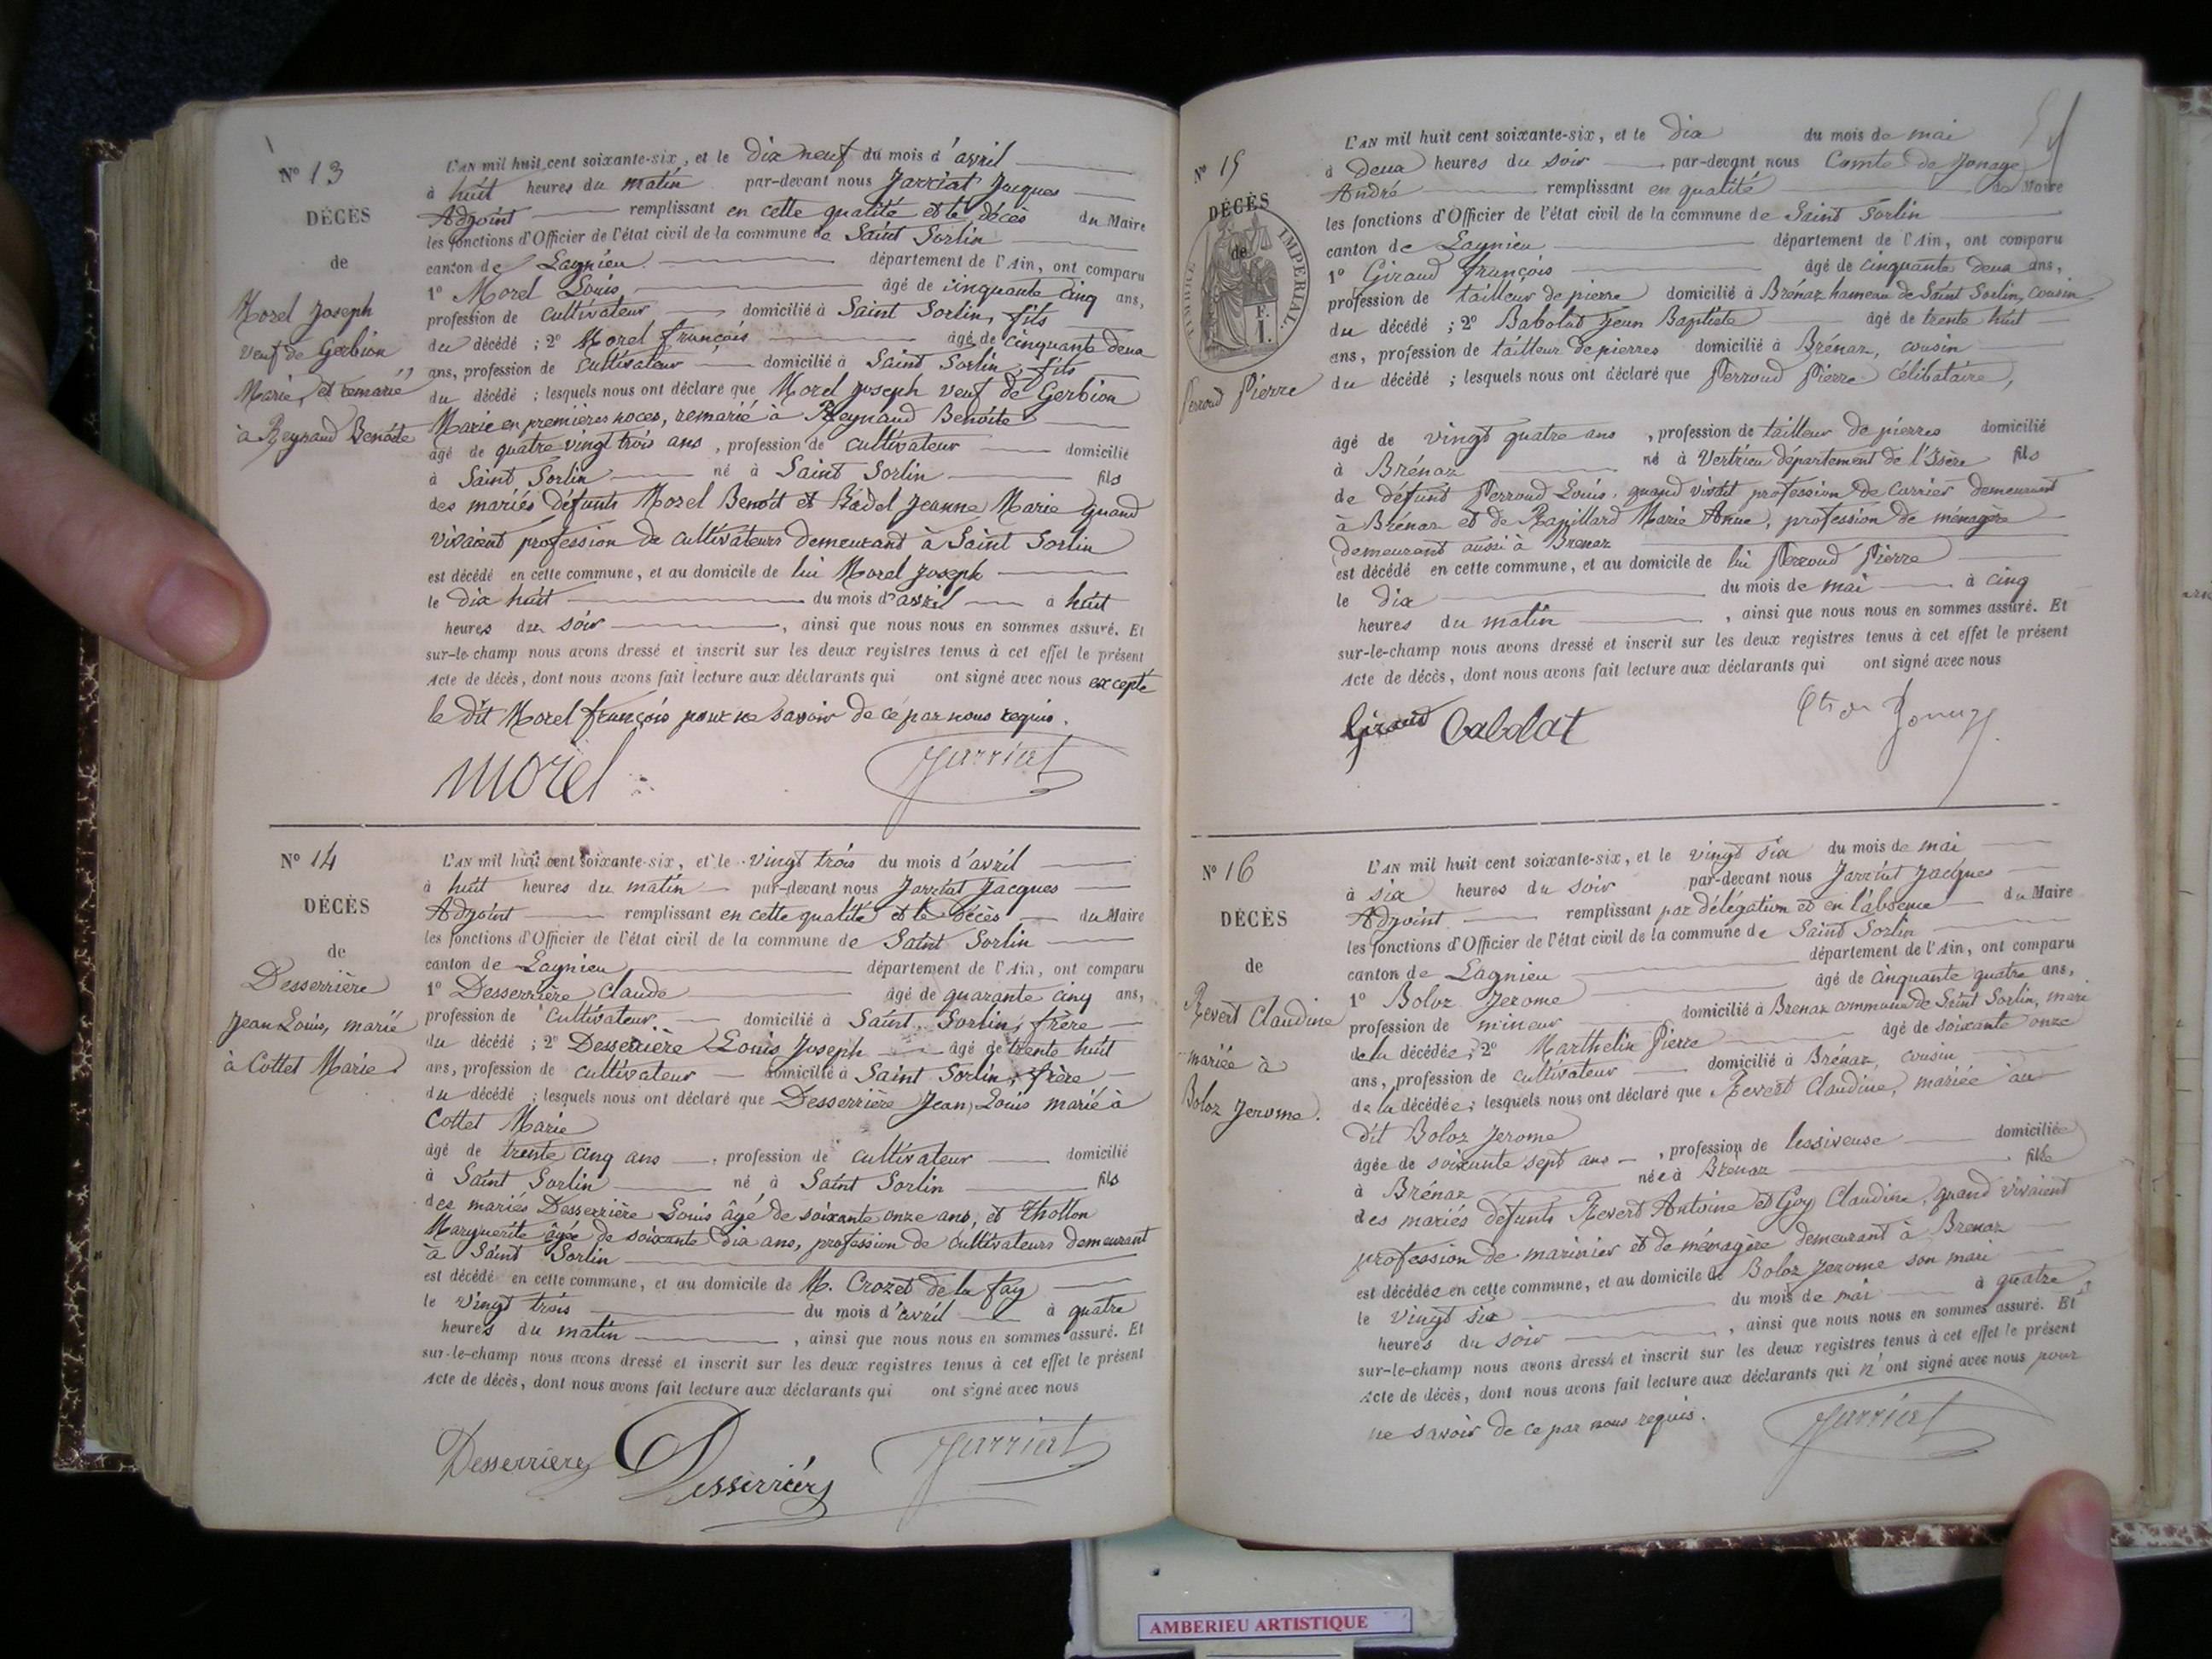 N° 13
DÉCÈS
de
Morel Joseph
veuf de Gerbion
Marie, et remarié
à Reynaud Benoîte
L'AN mil huit cent soixante-six, et le dix neuf du mois d'avril
à huit heures du matin par-devant nous Jarriat Jacques
Adjoint remplissant en cette qualité et le décès du Maire
les fonctions d'Officier de l'état civil de la commune de Saint Sorlin
canton de Lagnieu département de l'Ain, ont comparu
1° Morel Louis âgé de cinquante cinq ans,
profession de cultivateur domicilié à Saint Sorlin, fils
du décédé ; 2° Morel françois âgé de cinquante deux
ans, profession de cultivateur domicilié à Saint Sorlin, fils
du décédé ; lesquels nous ont déclaré que Morel Joseph veuf de Gerbion
Marie en premières noces, remarié à Reynaud Benoîte
âgé de quatre vingt trois ans, profession de cultivateur domicilié
à Saint Sorlin né à Saint Sorlin fils
des mariés défunts Morel Benoît et Jeanne Marie quand
vivaient profession de cultivateurs demeurant à Saint Sorlin
est décédé en cette commune, et au domicile de lui Morel Joseph
le dix huit du mois d'avril à huit
heures du soir, ainsi que nous nous en sommes assuré. Et
sur-le-champ nous avons dressé et inscrit sur les deux registres tenus à cet effet le présent
Acte de décès, dont nous avons fait lecture aux déclarants qui ont signé avec nous excepté
le dit Morel françois pour ne savoir de ce par nous requis.
Morel Jarriat
N° 14
DÉCÈS
de
Desserrière
Jean Louis, marié
à Cottet Marie
L'AN mil huit cent soixante-six, et le vingt trois du mois d'avril
à huit heures du matin par-devant nous Jarriat Jacques
Adjoint remplissant en cette qualité et le décès du Maire
les fonctions d'Officier de l'état civil de la commune de Saint Sorlin
canton de Lagnieu département de l'Ain, ont comparu
1° Desserrière Claude âgé de quarante cinq ans,
profession de cultivateur domicilié à Saint Sorlin, frère
du décédé ; 2° Desserrière Louis Joseph âgé de trente huit
ans, profession de cultivateur domicilié à Saint Sorlin, frère
du décédé ; lesquels nous ont déclaré que Desserrière Jean Louis marié à
Cottet Marie
âgé de trente cinq ans, profession de cultivateur domicilié
à Saint Sorlin né à Saint Sorlin fils
des mariés Desserrière Louis âgé de soixante onze ans, et Thollon
Marguerite âgée de soixante dix ans, profession de cultivateurs demeurant
à Saint Sorlin
est décédé en cette commune, et au domicile de M. Crozet de la fay
le vingt trois du mois d'avril à quatre
heures du matin, ainsi que nous nous en sommes assuré. Et
sur-le-champ nous avons dressé et inscrit sur les deux registres tenus à cet effet le présent
Acte de décès, dont nous avons fait lecture aux déclarants qui ont signé avec nous
Desserrière Desserrière Jarriat
N° 15
DÉCÈS
de
TIMBRE IMPERIAL.
1 F.
Perroud Pierre
L'AN mil huit cent soixante-six, et le dix du mois de mai
à deux heures du soir par-devant nous Comte de Jonage
André remplissant en qualité de Maire
les fonctions d'Officier de l'état civil de la commune de Saint Sorlin
canton de Lagnieu département de l'Ain, ont comparu
1° Giraud françois âgé de cinquante deux ans,
profession de tailleur de pierre domicilié à Brénaz hameau de Saint Sorlin, cousin
du décédé ; 2° Babolat Jean Baptiste âgé de trente huit
ans, profession de tailleur de pierres domicilié à Brénaz, cousin
du décédé ; lesquels nous ont déclaré que Perroud Pierre célibataire,
âgé de vingt quatre ans, profession de tailleur de pierres domicilié
à Brénaz né à Vertrieu département de l'Isère fils
de défunt Perroud Louis, quand vivait profession de carrier demeurant
à Brénaz et de Rapillard Marie Anne, profession de ménagère
demeurant aussi à Brenaz
est décédé en cette commune, et au domicile de lui Perroud Pierre
le dix du mois de mai à cinq
heures du matin, ainsi que nous nous en sommes assuré. Et
sur-le-champ nous avons dressé et inscrit sur les deux registres tenus à cet effet le présent
Acte de décès, dont nous avons fait lecture aux déclarants qui ont signé avec nous
Giraud Babolat Cte de Jonage
N° 16
DÉCÈS
de
Revert Claudine
mariée à
Boloz Jerome.
L'AN mil huit cent soixante-six, et le vingt six du mois de mai
à six heures du soir par-devant nous Jarriat Jacques
Adjoint remplissant par délégation et en l'absence du Maire
les fonctions d'Officier de l'état civil de la commune de Saint Sorlin
canton de Lagnieu département de l'Ain, ont comparu
1° Boloz Jerome âgé de cinquante quatre ans,
profession de mineur domicilié à Brenaz commune de Saint Sorlin, mari
de la décédée ; 2° Marthelin Pierre âgé de soixante onze
ans, profession de cultivateur domicilié à Brénaz, cousin
de la décédée ; lesquels nous ont déclaré que Revert Claudine, mariée au
dit Boloz Jerome
âgée de soixante sept ans, profession de lessiveuse domiciliée
à Brénaz née à Brénaz fille
des mariés défunts Revert Antoine et Goy Claudine, quand vivaient
profession de marinier et de ménagère demeurant à Brenaz
est décédée en cette commune, et au domicile de Boloz Jerome son mari
le vingt six du mois de mai à quatre
heures du soir, ainsi que nous nous en sommes assuré. Et
sur-le-champ nous avons dressé et inscrit sur les deux registres tenus à cet effet le présent
Acte de décès, dont nous avons fait lecture aux déclarants qui n'ont signé avec nous pour
ne savoir de ce par nous requis.
Jarriat
AMBERIEU ARTISTIQUE